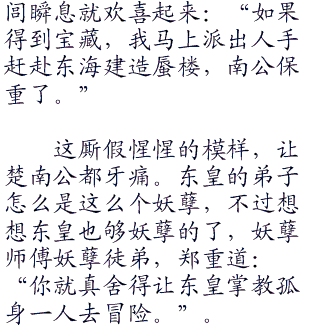 间瞬息就欢喜起来：“如果
得到宝藏，我马上派出人手
赶赴东海建造蜃楼，南公保
重了。”
这厮假惺惺的模样，让
楚南公都牙痛。东皇的弟子
怎么是这么个妖孽，不过想
想东皇也够妖孽的了，妖孽
师傅妖孽徒弟，郑重道：
“你就真舍得让东皇掌教孤
身一人去冒险。”。